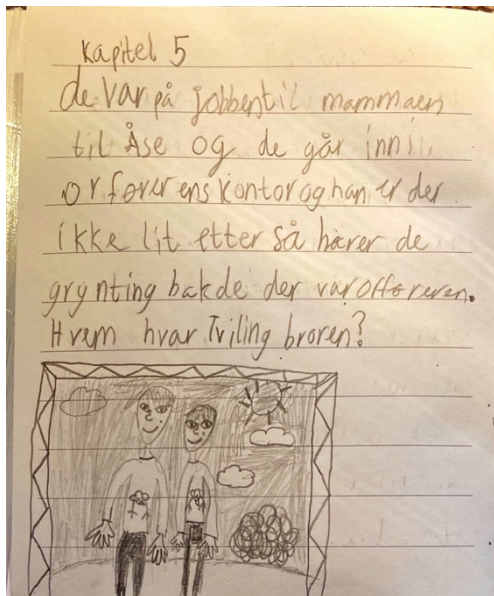 kapitel 5
de var på jobben til mammaen
til Åse og de går inn i
orførerens kontor og han er der
ikke lit etter så hører de
grynting bak de der var offøreren.
Hvem hvar Tviling broren?